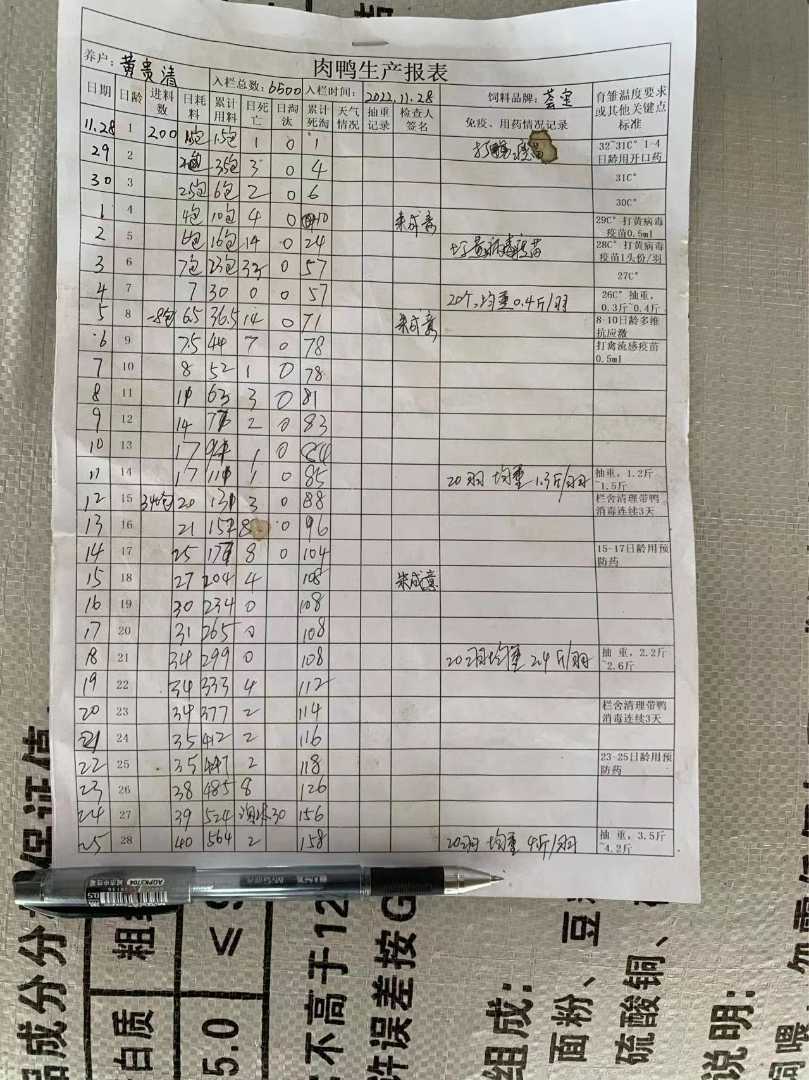 肉鸭生产报表
养户: 黄贵清 入栏总数: 6500 入栏时间: 2022.11.28 饲料品牌:
日期 日龄 进料数 日耗料 累计用料 日死亡 日淘汰 累计死淘 天气情况 抽重记录 检查人签名 免疫、用药情况记录 育雏温度要求或其他关键点标准
11.28 1 200 1包 15包 1 0 1 32~31C° 1-4日龄用开口药
29 2 35包 3 0 4 31C°
30 3 25包 6包 2 0 6 30C°
1 4 4包 10包 4 0 10 朱成意 29C° 打黄病毒疫苗0.5ml
2 5 6包 16包 14 0 24 打黄病毒疫苗 28C° 打黄病毒疫苗1头份/羽
3 6 7包 23包 33 0 57 27C°
4 7 7 30 0 0 57 20个,均重0.4斤/羽 26C° 抽重,0.3斤~0.4斤
5 8 -8包 6.5 36.5 14 0 71 朱成意 8-10日龄多维抗应激
6 9 7.5 44 7 0 78 打禽流感疫苗0.5ml
7 10 8 52 1 0 78
8 11 11 63 3 0 81
9 12 14 77 2 0 83
10 13 17 94 1 0 84
11 14 17 111 1 0 85 20羽 均重1.3斤/羽 抽重,1.2斤~1.5斤
12 15 340包 20 131 3 0 88 栏舍清理带鸭消毒连续3天
13 16 21 152 8 0 96
14 17 25 177 8 0 104 15-17日龄用预防药
15 18 27 204 4 108 朱成意
16 19 30 234 0 108
17 20 31 265 0 108
18 21 34 299 0 108 20羽均重 2.4斤/羽 抽 重,2.2斤~2.6斤
19 22 34 333 4 112
20 23 34 377 2 114 栏舍清理带鸭消毒连续3天
21 24 35 412 2 116
22 25 35 447 2 118 23-25日龄用预防药
23 26 38 485 8 126
24 27 39 524 淘汰30 156
25 28 40 564 2 158 20羽 均重 4斤/羽 抽 重,3.5斤~4.2斤
AGPK3704
品成分分
保证值
白质
粗
5.0
≤
不高于12
许误差按G
组成:
面粉、豆
硫酸铜、
说明: